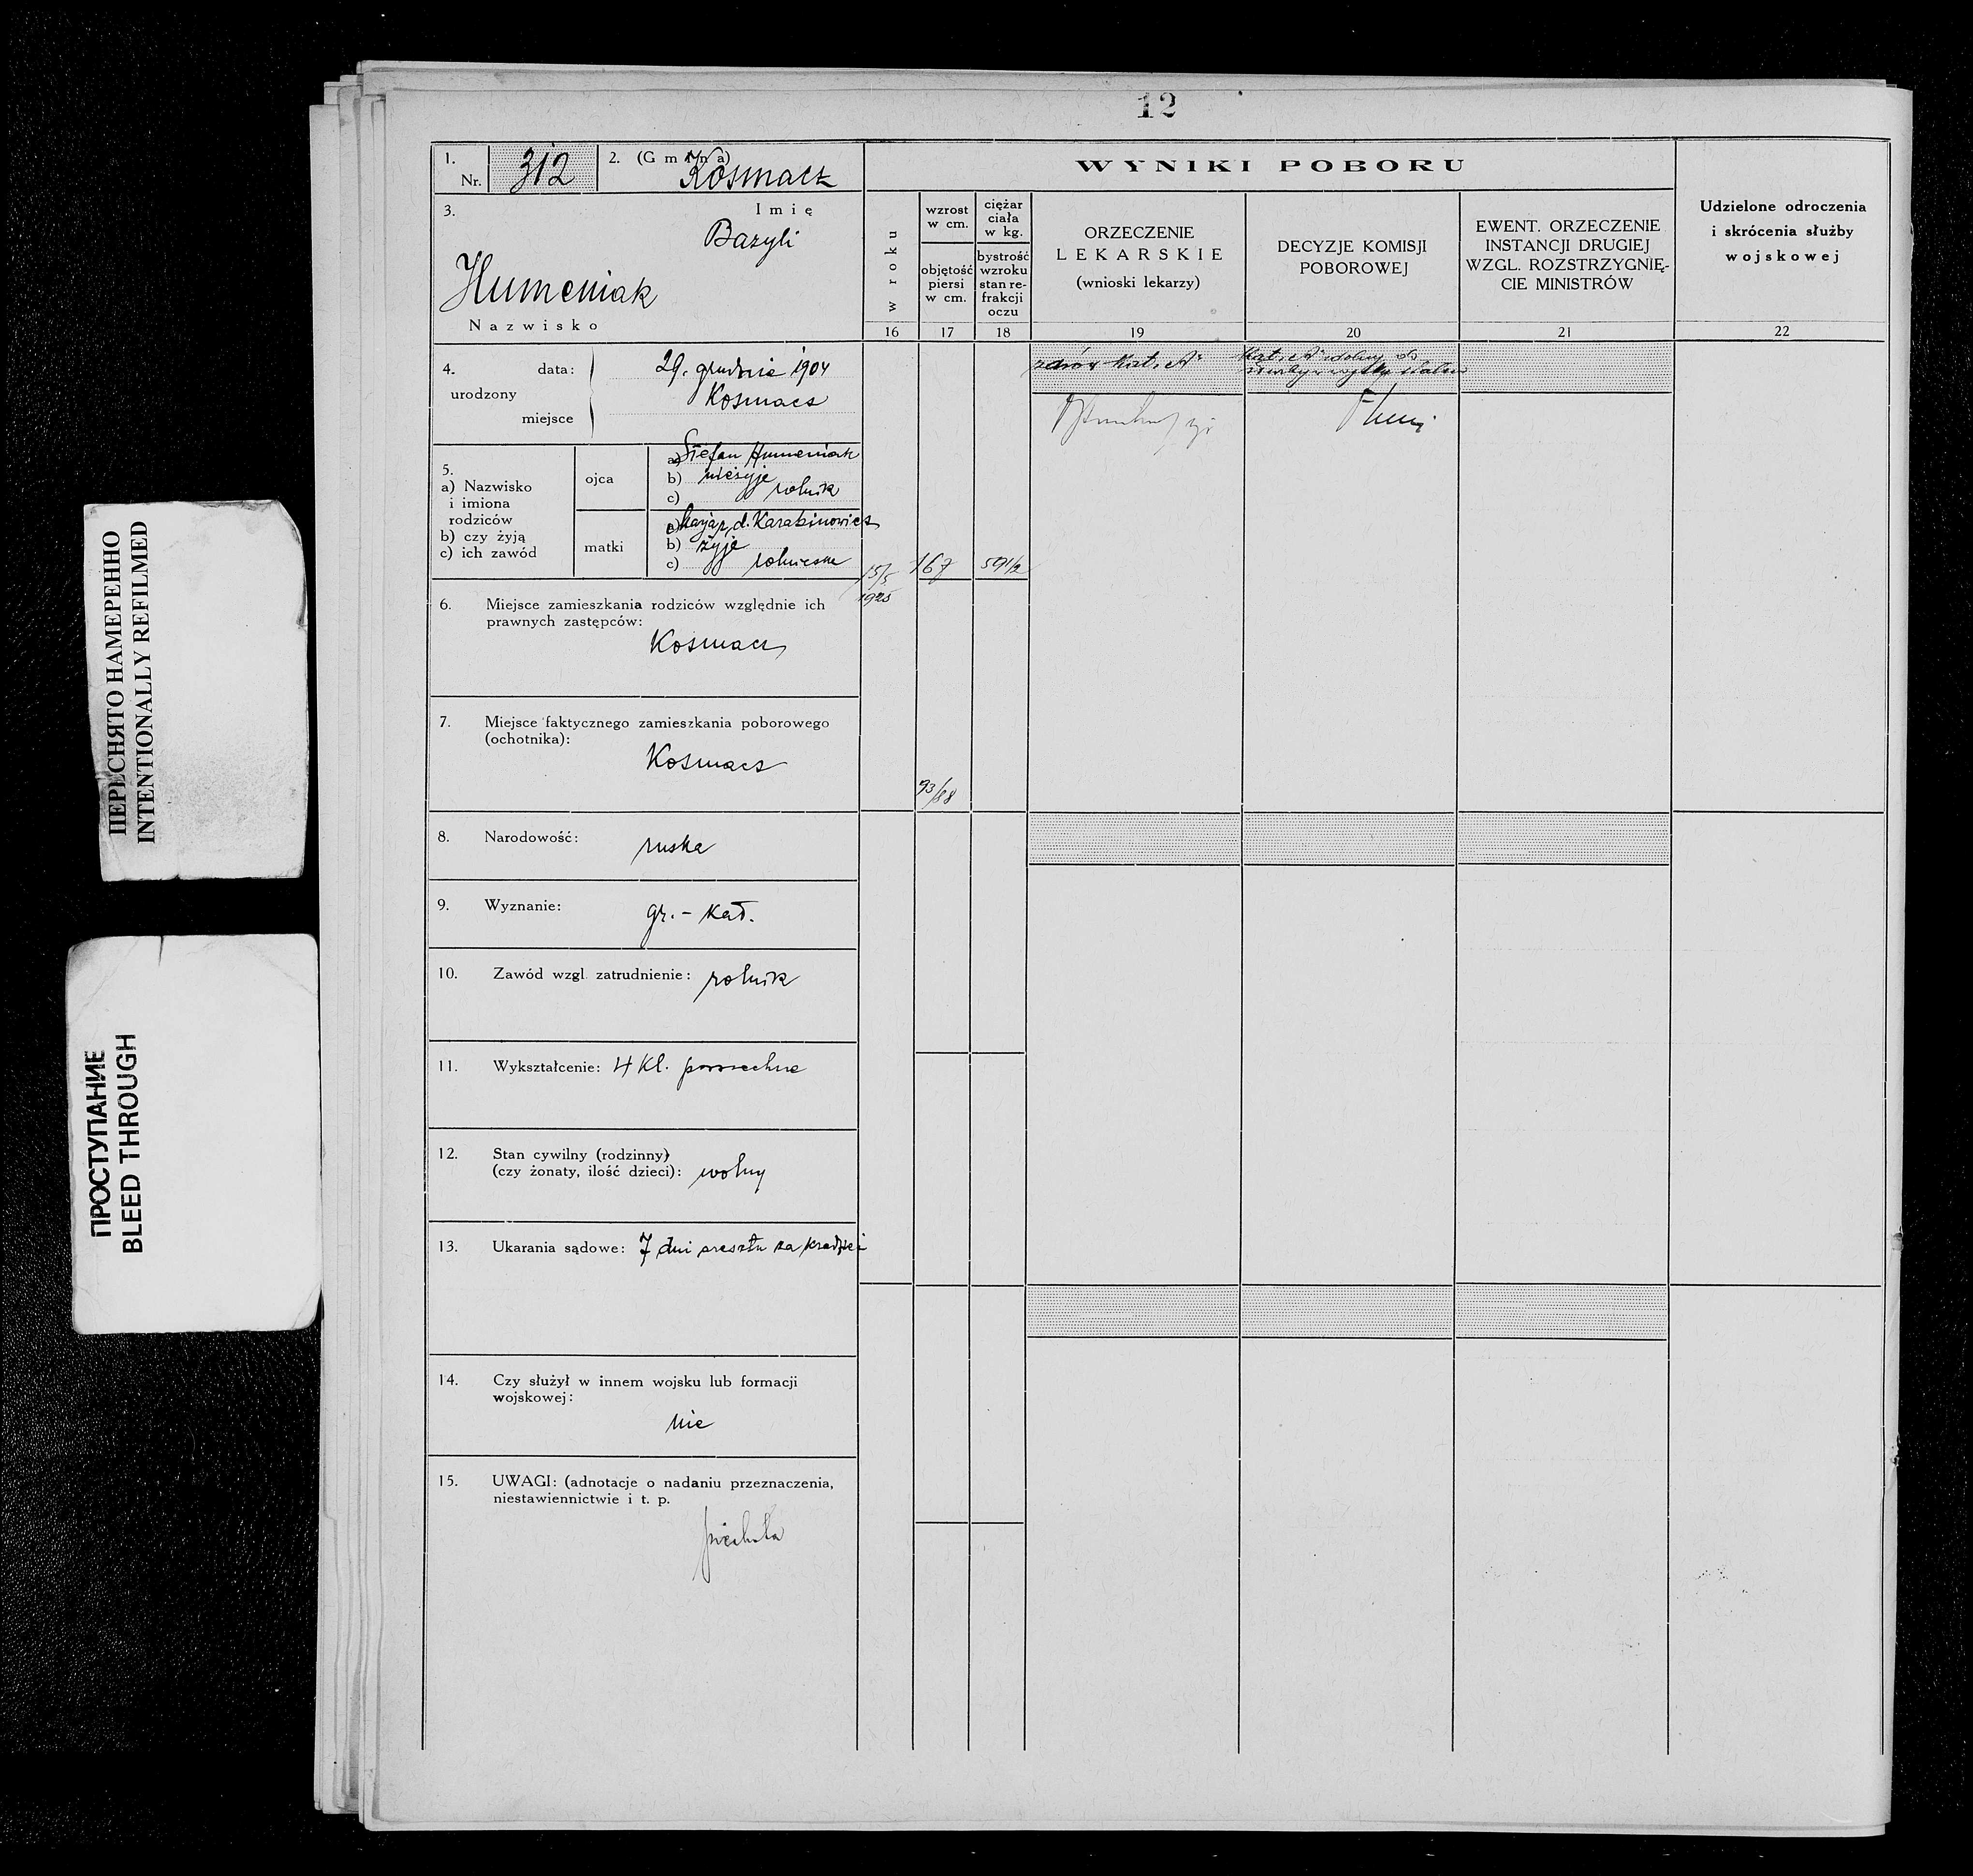 12
1. Nr. 312
2. (Gmina) Kosmacz
3. Imię
Bazyli
Humeniak
Nazwisko
4. urodzony
data: 29. grudnia 1904
miejsce Kosmacz
5.
a) Nazwisko
i imiona
rodziców
b) czy żyją
c) ich zawód
ojca
a) Stefan Humeniak
b) nieżyje
c) rolnik
matki
a) Marja z d. Karabinowicz
b) żyje
c) rolniczka
6. Miejsce zamieszkania rodziców względnie ich
prawnych zastępców:
Kosmacz
7. Miejsce faktycznego zamieszkania poborowego
(ochotnika):
Kosmacz
8. Narodowość: ruska
9. Wyznanie: gr.-kat.
10. Zawód wzgl. zatrudnienie: rolnik
11. Wykształcenie: 4 kl. powszechne
12. Stan cywilny (rodzinny)
(czy żonaty, ilość dzieci): wolny
13. Ukarania sądowe: 7 dni aresztu za kradzież
14. Czy służył w innem wojsku lub formacji
wojskowej:
nie
15. UWAGI: (adnotacje o nadaniu przeznaczenia,
niestawiennictwie i t. p.
piechota
WYNIKI POBORU
w roku
16
wzrost
w cm.
objętość
piersi
w cm.
17
ciężar
ciała
w kg.
bystrość
wzroku
stan re-
frakcji
oczu
18
ORZECZENIE
LEKARSKIE
(wnioski lekarzy)
19
DECYZJE KOMISJI
POBOROWEJ
20
EWENT. ORZECZENIE
INSTANCJI DRUGIEJ
WZGL. ROZSTRZYGNIĘ-
CIE MINISTRÓW
21
Udzielone odroczenia
i skrócenia służby
wojskowej
22
15/5
1925
167
59 1/2
93/88
zdrów kat. "A"
Kat. "A" zdolny do
ПЕРЕСНЯТО НАМЕРЕННО
INTENTIONALLY REFILMED
ПРОСТУПАНИЕ
BLEED THROUGH